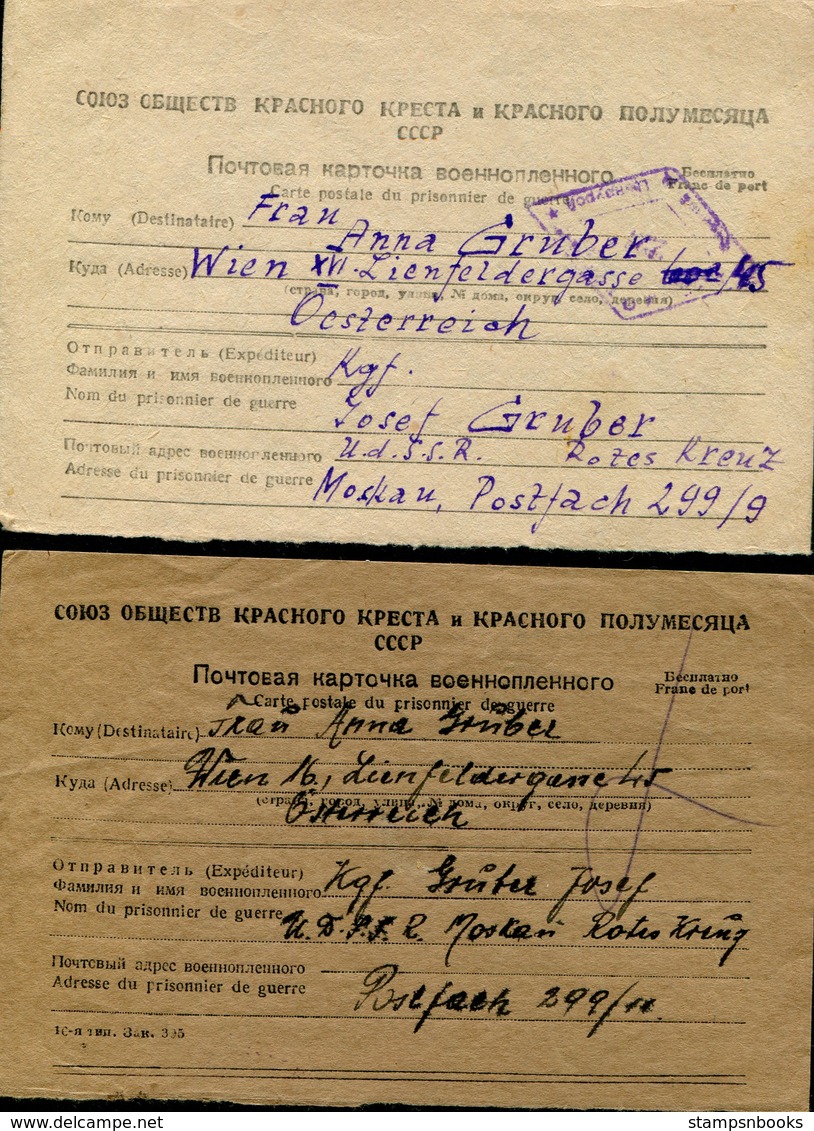 СОЮЗ ОБЩЕСТВ КРАСНОГО КРЕСТА и КРАСНОГО ПОЛУМЕСЯЦА
СССР
Почтовая карточка военнопленного
Бесплатно
Carte postale du prisonnier de guerre
Franc de port
Кому (Destinataire) Frau
Anna Gruber
Куда (Adresse) Wien XVI. Lienfeldergasse /45
(страна, город, улица, № дома, округ, село, деревня)
Oesterreich
Отправитель (Expéditeur)
Фамилия и имя военнопленного Kgf.
Nom du prisonnier de guerre
Josef Gruber
Почтовый адрес военнопленного U.d.S.S.R. Rotes Kreuz
Adresse du prisonnier de guerre Moskau, Postfach 299/9
СОЮЗ ОБЩЕСТВ КРАСНОГО КРЕСТА и КРАСНОГО ПОЛУМЕСЯЦА
СССР
Почтовая карточка военнопленного
Бесплатно
Franc de port
Carte postale du prisonnier de guerre
Кому (Destinataire) Frau Anna Gruber
Куда (Adresse) Wien 16, Lienfeldergasse 45
(страна, город, улица, № дома, округ, село, деревня)
Österreich
Отправитель (Expéditeur)
Фамилия и имя военнопленного Kgf. Gruber Josef
Nom du prisonnier de guerre
U.D.S.S.R. Moskau Rotes Kreuz
Почтовый адрес военнопленного
Adresse du prisonnier de guerre Postfach 299/11
16-я тип. Зак. 395
stampsnbooks